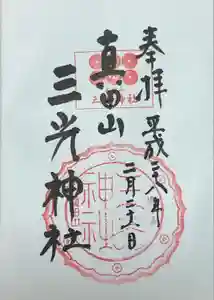 奉拝
平成二八年
二月二十一日
真田山
三光神社